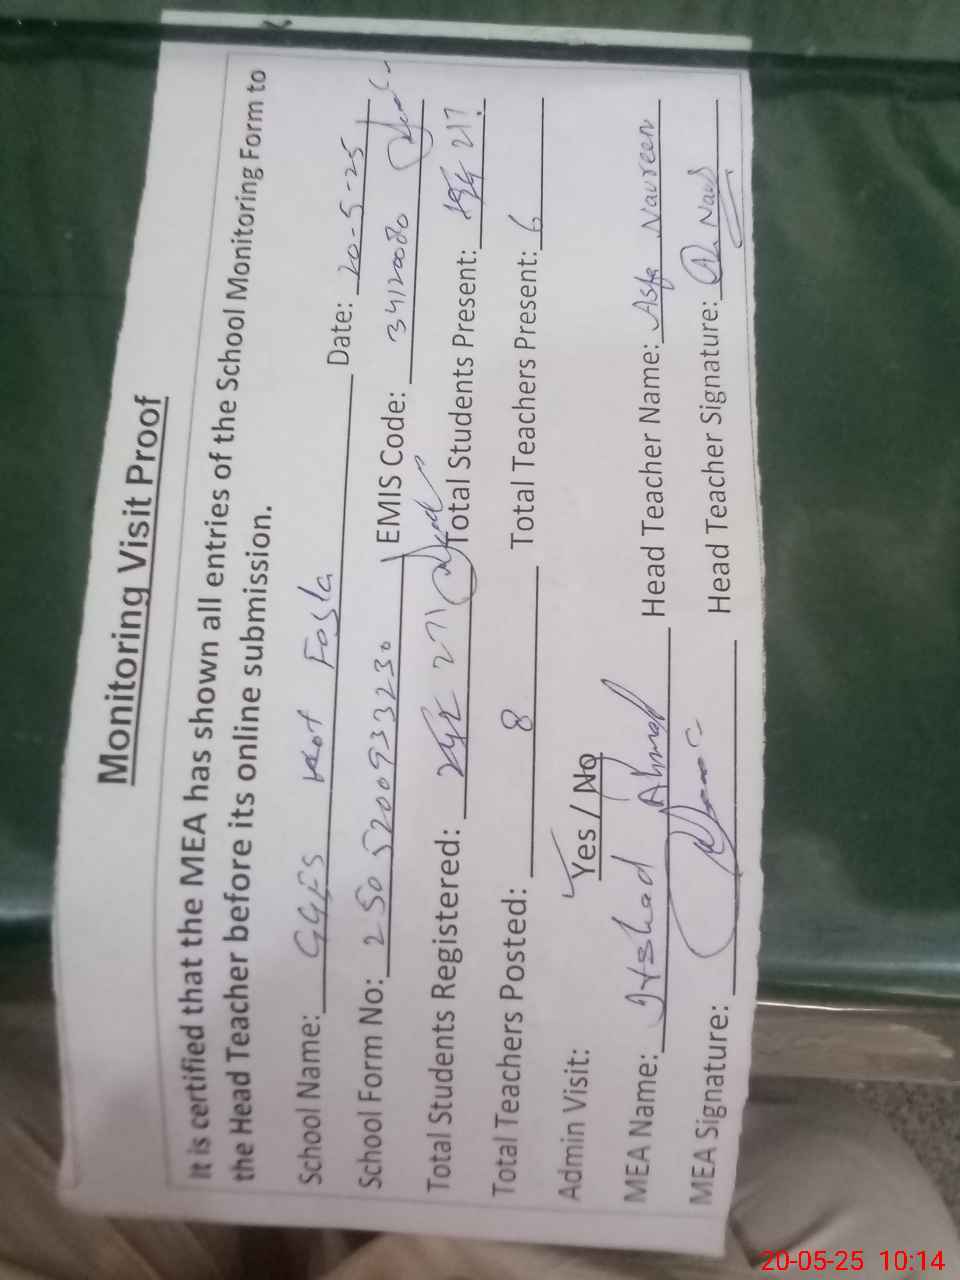 Monitoring Visit Proof
It is certified that the MEA has shown all entries of the School Monitoring Form to
the Head Teacher before its online submission.
School Name: GGES Kot Fazla Date: 20-5-25
School Form No: 2505200933230 EMIS Code: 34120080
Total Students Registered: 271 Total Students Present: 217
Total Teachers Posted: 8 Total Teachers Present: 6
Admin Visit: Yes / No
MEA Name: Irshad Ahmad Head Teacher Name: Asfa Naureen
MEA Signature: Head Teacher Signature:
20-05-25 10:14